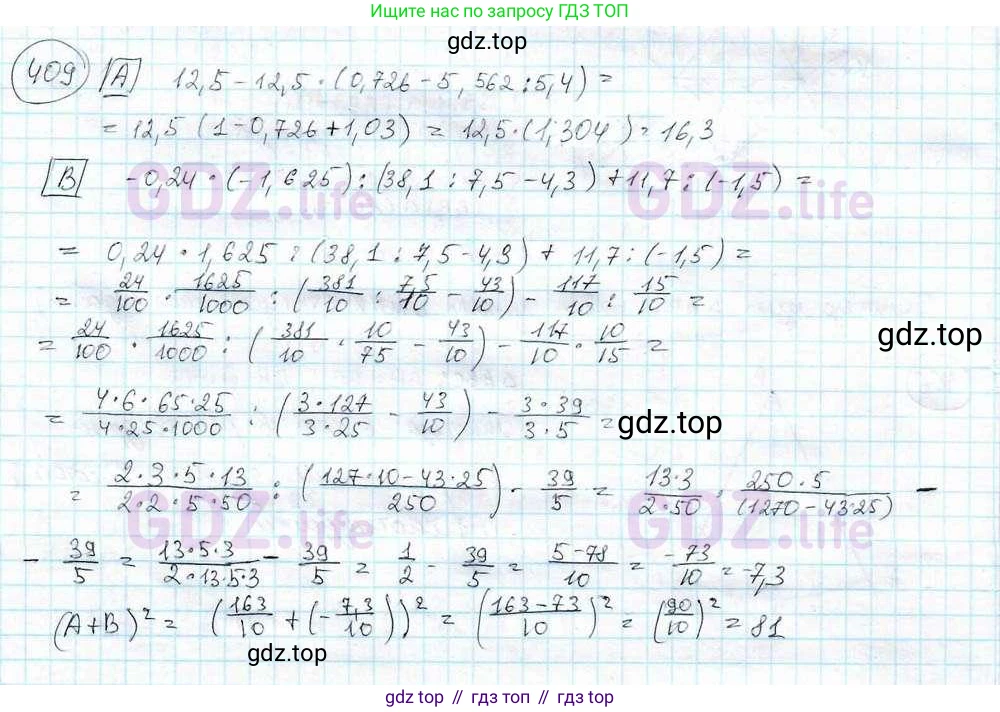 Ищите нас по запросу ГДЗ ТОП
gdz.top
409 A 12,5 - 12,5 · (0,726 - 5,562 : 5,4) =
= 12,5 (1 - 0,726 + 1,03) = 12,5 · (1,304) = 16,3
B -0,24 · (-1,625) : (38,1 : 7,5 - 4,3) + 11,7 : (-1,5) =
GDZ.life GDZ.life
= 0,24 · 1,625 : (38,1 : 7,5 - 4,3) + 11,7 : (-1,5) =
= 24/100 · 1625/1000 : (381/10 : 7,5/10 - 43/10) - 117/10 : 15/10 =
= 24/100 · 1625/1000 : (381/10 · 10/75 - 43/10) - 117/10 · 10/15 =
gdz.top
= 4·6·65·25/4·25·1000 : (3·127/3·25 - 43/10) - 3·39/3·5 =
gdz.top
= 2·3·5·13/2·2·5·50 : (127·10-43·25/250) - 39/5 = 13·3/2·50 · 250·5/(1270-43·25) -
GDZ.life GDZ.life
- 39/5 = 13·5·3/2·13·5·3 - 39/5 = 1/2 - 39/5 = 5-78/10 = -73/10 = -7,3
(A+B)² = (163/10 + (-7,3/10))² = (163-73/10)² = (90/10)² = 81
gdz.top
gdz.top // гдз топ // gdz top